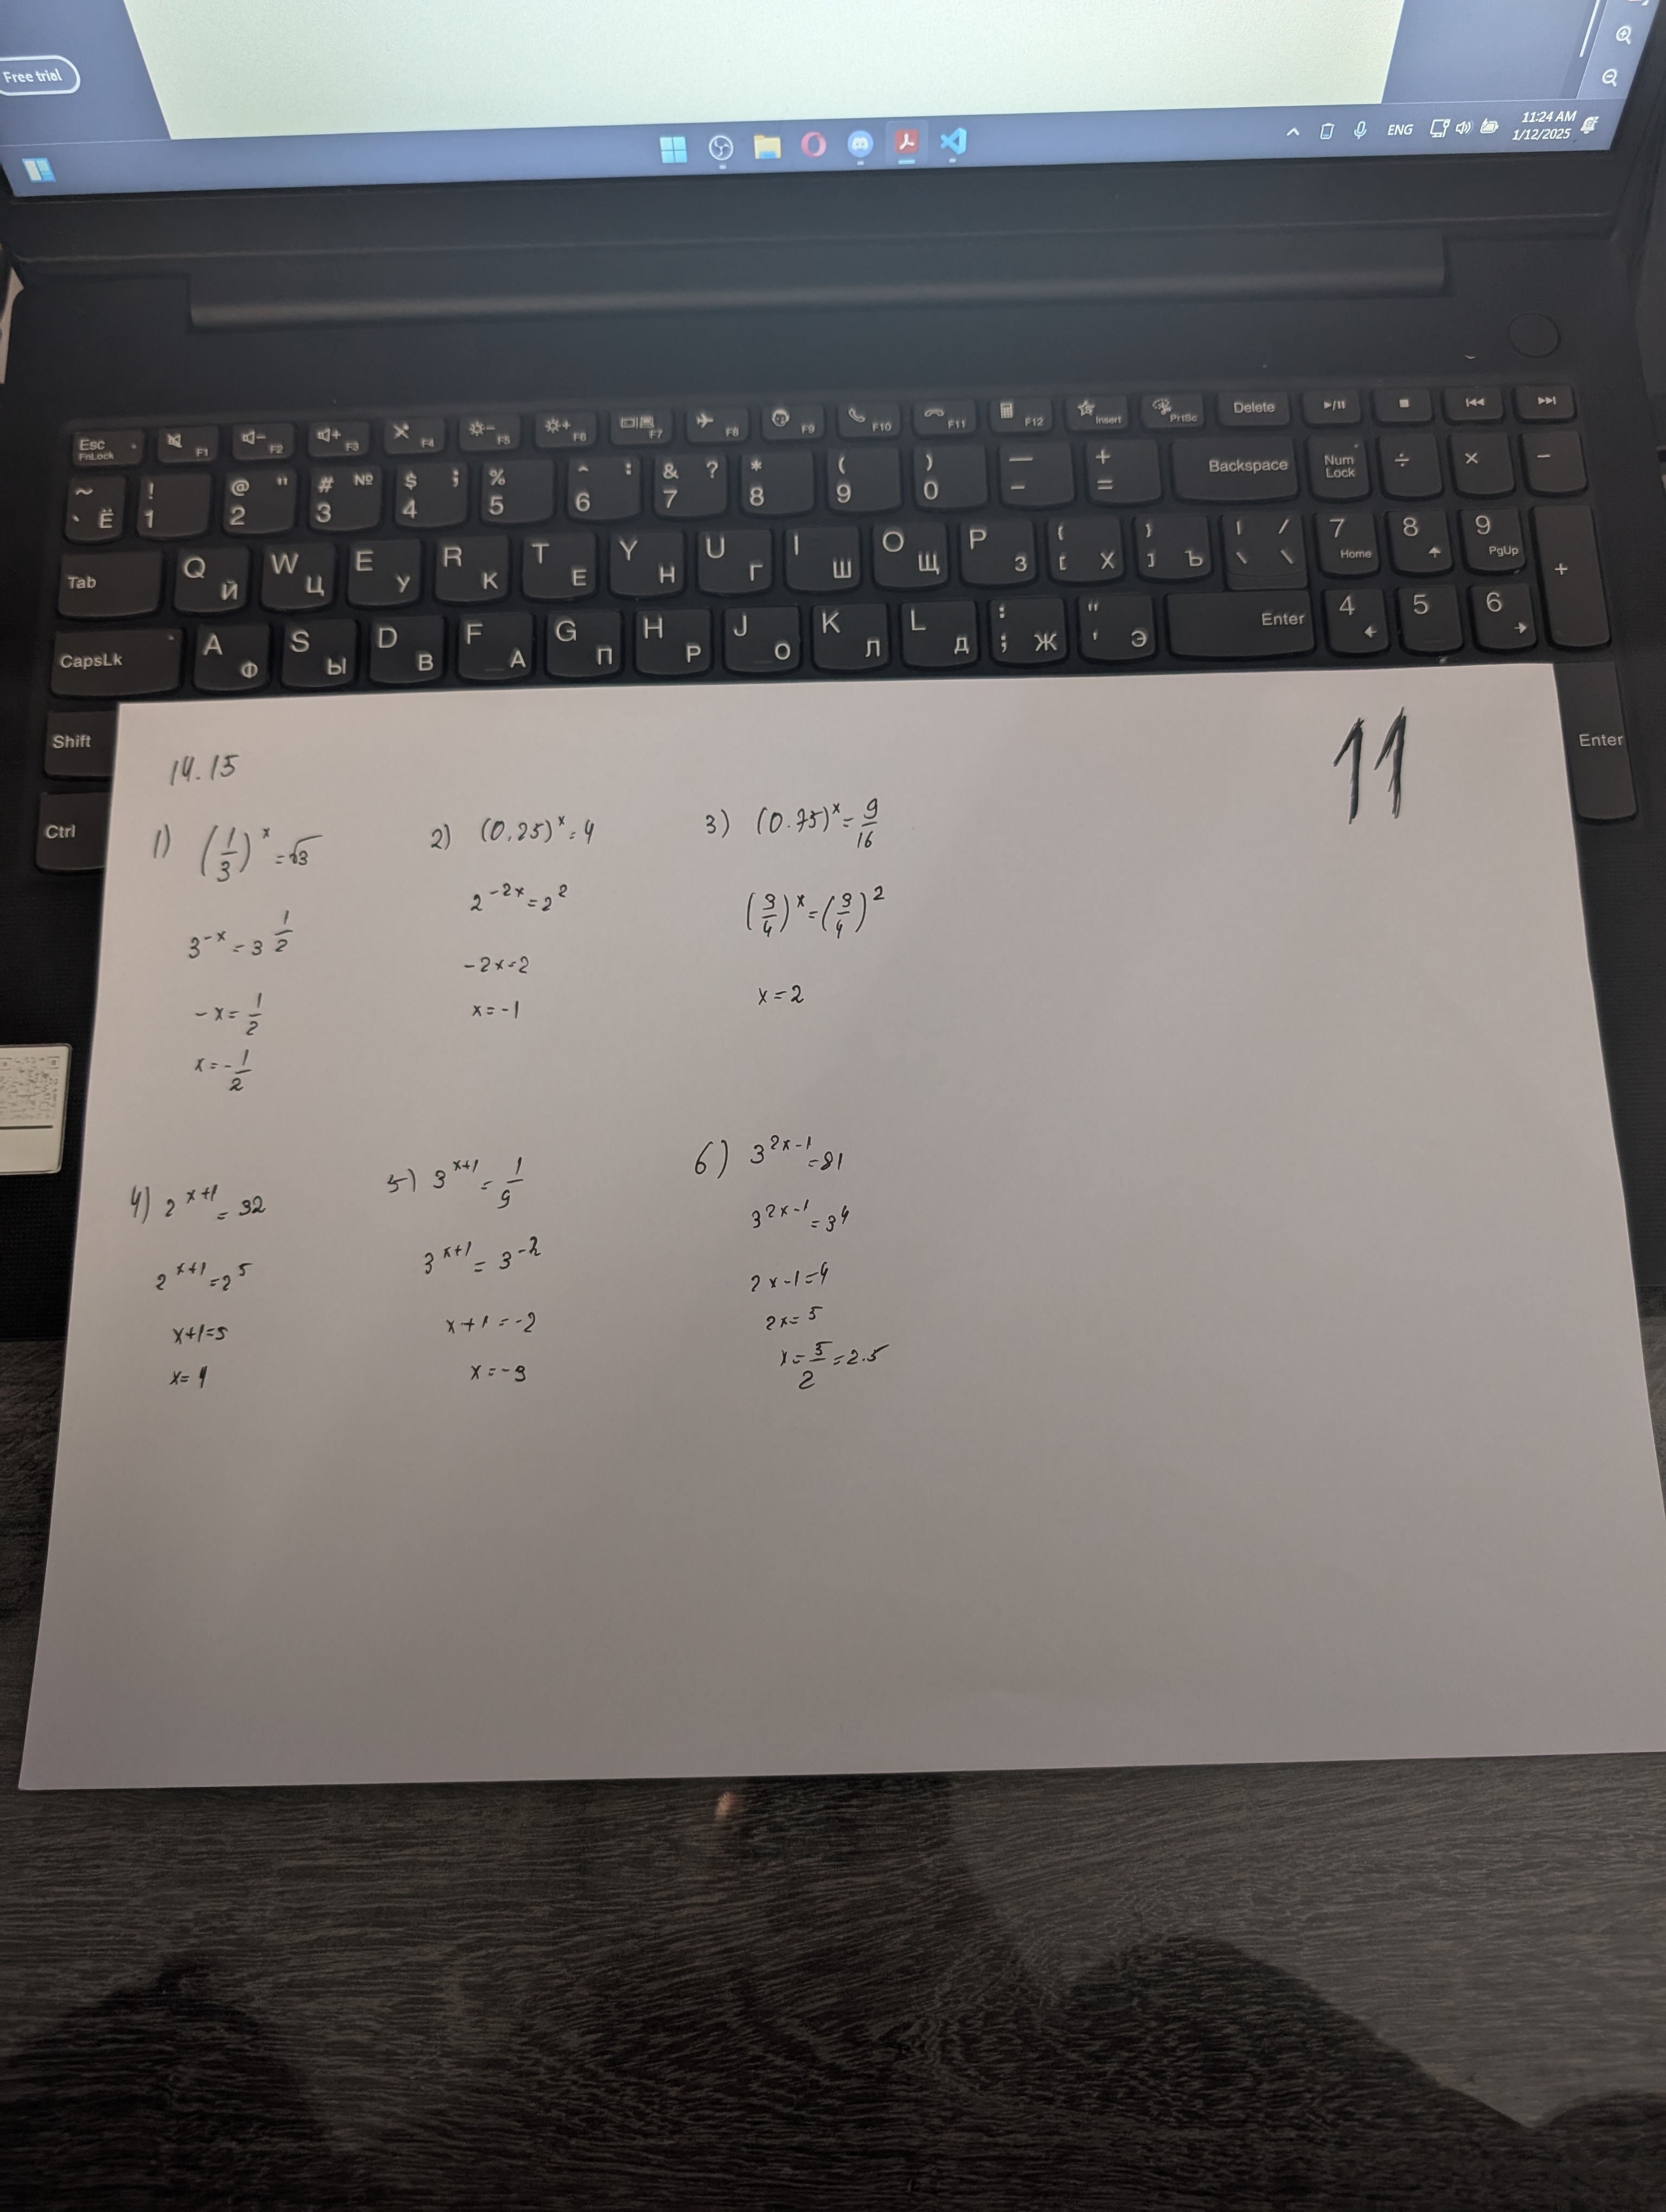 Free trial
11:24 AM
ENG
1/12/2025
Esc FnLock F1 F2 F3 F4 F5 F6 F7 F8 F9 F10 F11 F12 Insert PrtSc Delete
~ ` Ё ! 1 @ " 2 # № 3 $ ; 4 % 5 ^ : 6 & ? 7 * 8 ( 9 ) 0 — - + = Backspace Num Lock ÷ × −
Tab Q Й W Ц E У R К T Е Y Н U Г I Ш O Щ P З { [ Х } ] Ъ | / \ \ 7 Home 8 9 PgUp +
CapsLk A Ф S Ы D В F А G П H Р J О K Л L Д : ; Ж " ' Э Enter 4 5 6
Shift Enter
Ctrl
11
14.15
1) (1/3)^x = √3
3^-x = 3^1/2
-x = 1/2
x = -1/2
2) (0,25)^x = 4
2^-2x = 2^2
-2x=2
x = -1
3) (0.75)^x = 9/16
(3/4)^x = (3/4)^2
x = 2
4) 2^x+1 = 32
2^x+1 = 2^5
x+1=5
x= 4
5) 3^x+1 = 1/9
3^x+1 = 3^-2
x+1 = -2
x = -3
6) 3^2x-1 = 81
3^2x-1 = 3^4
2x-1=4
2x= 5
x = 5/2 = 2.5